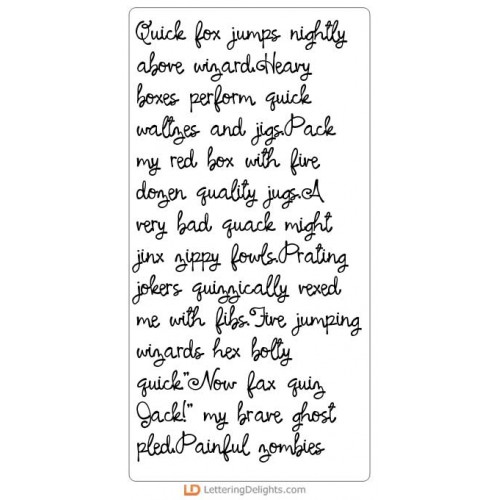 Quick fox jumps nightly
above wizard.Heavy
boxes perform quick
waltzes and jigs.Pack
my red box with five
dozen quality jugs.A
very bad quack might
jinx zippy fowls.Prating
jokers quizzically vexed
me with fibs.Five jumping
wizards hex bolty
quick"Now fax quiz
Jack!" my brave ghost
pled.Painful zombies
LD LetteringDelights.com